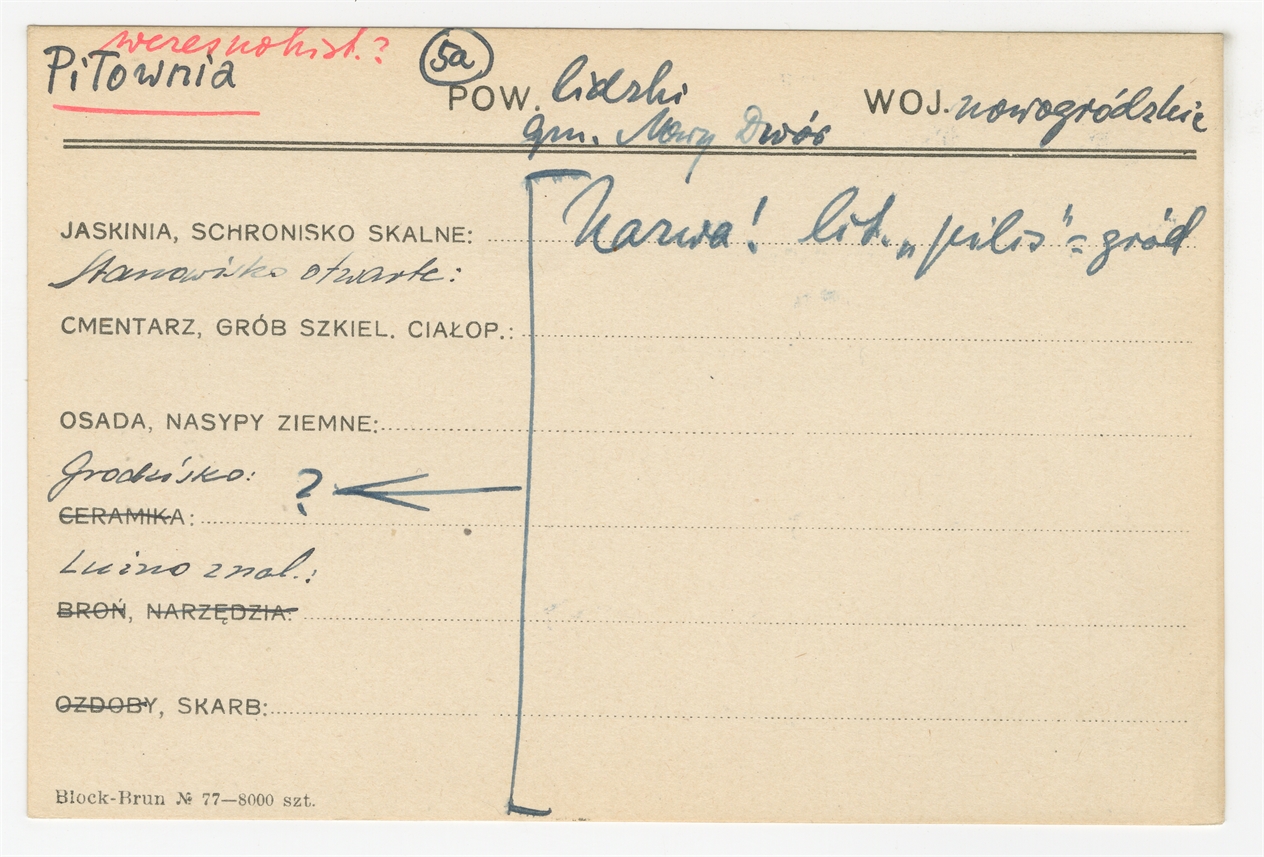 wczesnohist.?
Piłownia
5a
POW. lidzki
WOJ. nowogródzkie
gm. Nowy Dwór
Nazwa! lit. „pilis" = gród
JASKINIA, SCHRONISKO SKALNE:
Stanowisko otwarte:
CMENTARZ, GRÓB SZKIEL. CIAŁOP.:
OSADA, NASYPY ZIEMNE:
Grodzisko: ?
CERAMIKA:
Luźno znal.:
BROŃ, NARZĘDZIA:
OZDOBY, SKARB:
Block-Brun № 77—8000 szt.